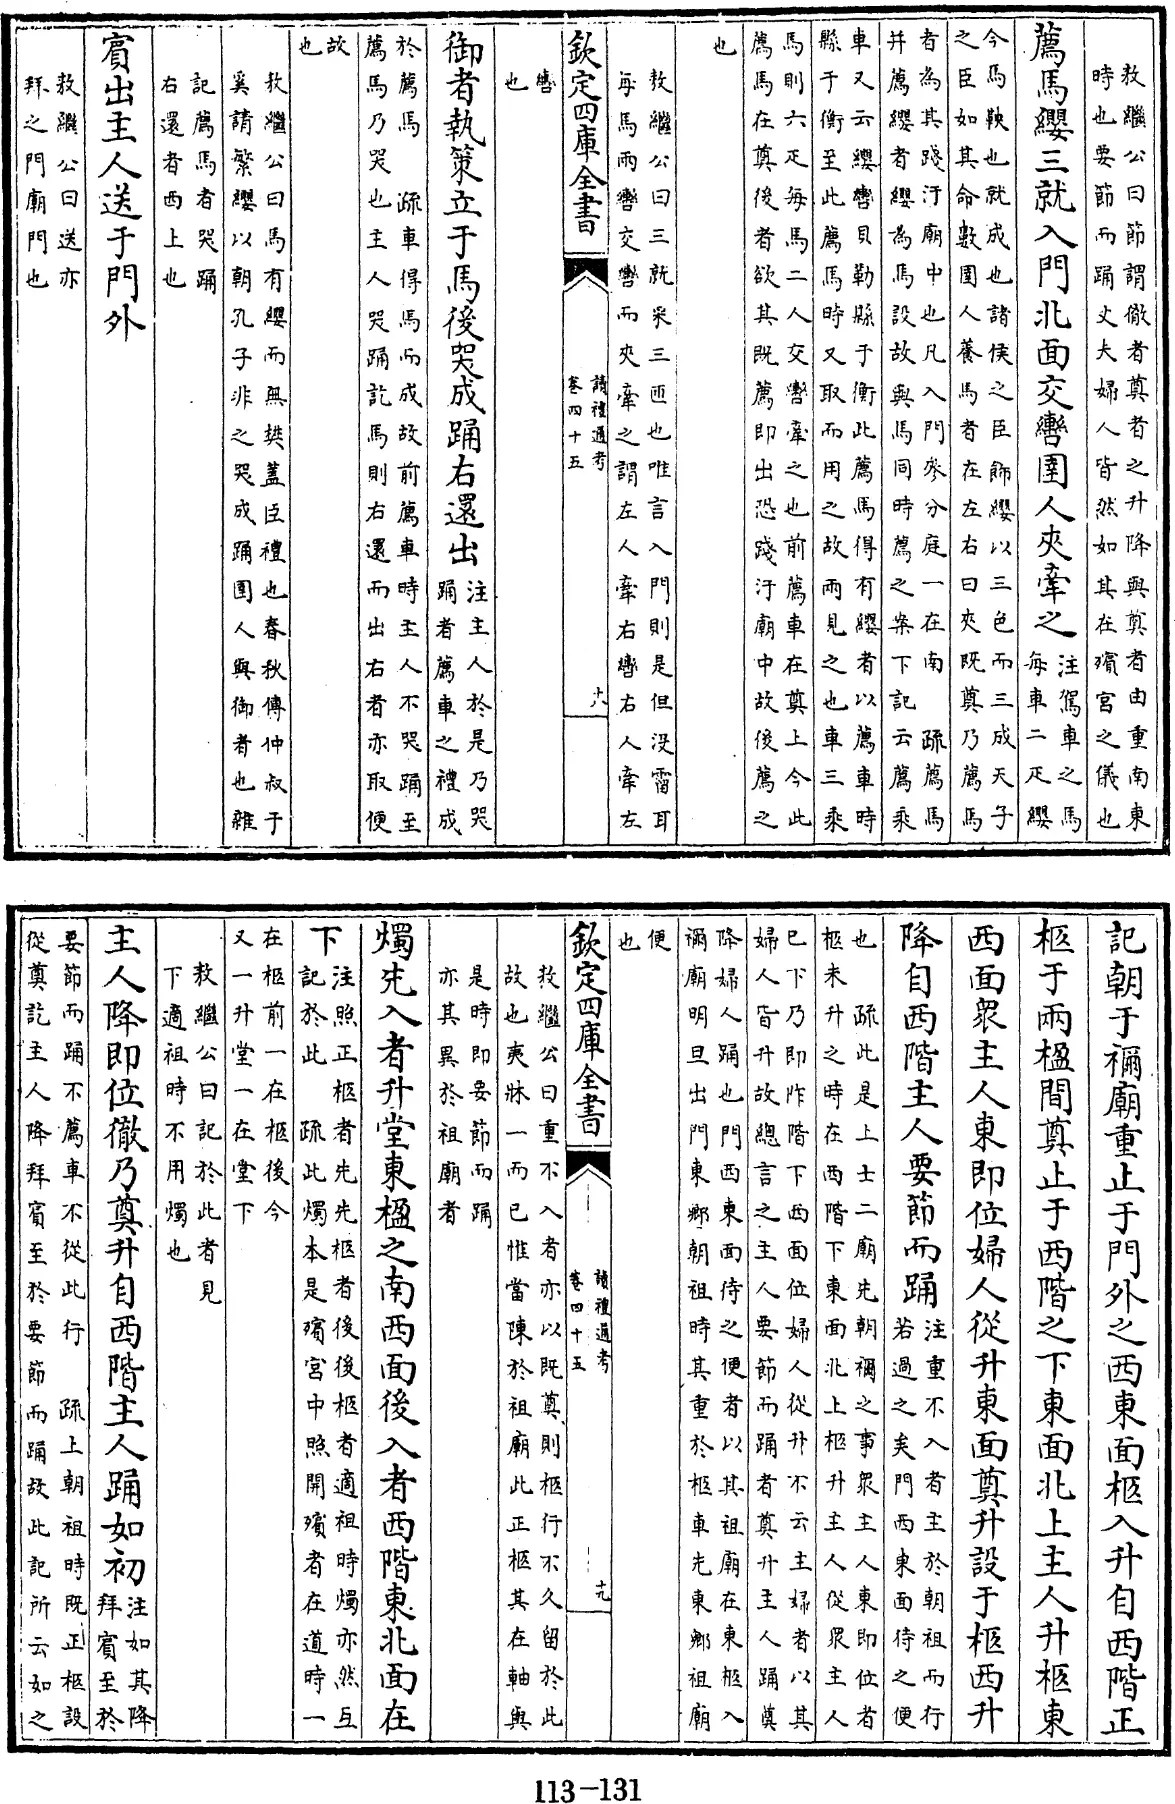 敖繼公曰節謂徹者奠者之升降與奠者由重南東
時也要節而踊丈夫婦人皆然如其在殯宮之儀也
薦馬纓三就入門北面交轡圉人夾牽之注駕車之馬
每車二疋纓
今馬鞅也就成也諸侯之臣飾纓以三色而三成天子
之臣如其命數圉人養馬者在左右曰夾既奠乃薦馬
者為其踐汙廟中也凡入門參分庭一在南　疏薦馬
并薦纓者纓為馬設故與馬同時薦之案下記云薦乘
車又云纓轡貝勒縣于衡此薦馬得有纓者以薦車時
縣于衡至此薦馬時又取而用之故兩見之也車三乘
馬則六疋每馬二人交轡牽之也前薦車在奠上今此
薦馬在奠後者欲其既薦即出恐踐汙廟中故後薦之
也
敖繼公曰三就采三匝也唯言入門則是但沒霤耳
每馬兩轡交轡而夾牽之謂左人牽右轡右人牽左
欽定四庫全書
讀禮通考
卷四十五
十八
轡
也
御者執策立于馬後哭成踊右還出注主人於是乃哭
踊者薦車之禮成
於薦馬　疏車得馬而成故前薦車時主人不哭踊至
薦馬乃哭也主人哭踊訖馬則右還而出右者亦取便
故
也
敖繼公曰馬有纓而無拱蓋臣禮也春秋傳仲叔于
奚請繁纓以朝孔子非之哭成踊圉人與御者也雜
記薦馬者哭踊
右還者西上也
賓出主人送于門外
敖繼公曰送亦
拜之門廟門也
記朝于禰廟重止于門外之西東面柩入升自西階正
柩于兩楹間奠止于西階之下東面北上主人升柩東
西面衆主人東即位婦人從升東面奠升設于柩西升
降自西階主人要節而踊注重不入者主於朝祖而行
若過之矣門西東面待之便
也　疏此是上士二廟先朝禰之事衆主人東即位者
柩未升之時在西階下東面北上柩升主人從衆主人
已下乃即阼階下西面位婦人從升不云主婦者以其
婦人皆升故總言之主人要節而踊者奠升主人踊奠
降婦人踊也門西東面侍之便者以其祖廟在東柩入
禰廟明旦出門東鄉朝祖時其重於柩車先東鄉祖廟
便
也
欽定四庫全書
讀禮通考
卷四十五
十九
敖繼公曰重不入者亦以既奠則柩行不久留於此
故也夷牀一而已惟當陳於祖廟此正柩其在軸與
是時即要節而踊
亦其異於祖廟者
燭先入者升堂東楹之南西面後入者西階東北面在
下注照正柩者先先柩者後後柩者適祖時燭亦然互
記於此　疏此燭本是殯宮中照開殯者在道時一
在柩前一在柩後今
又一升堂一在堂下
敖繼公曰記於此者見
下適祖時不用燭也
主人降即位徹乃奠升自西階主人踊如初注如其降
拜賓至於
要節而踊不薦車不從此行　疏上朝祖時既正柩設
從奠訖主人降拜賓至於要節而踊故此記所云如之
113-131